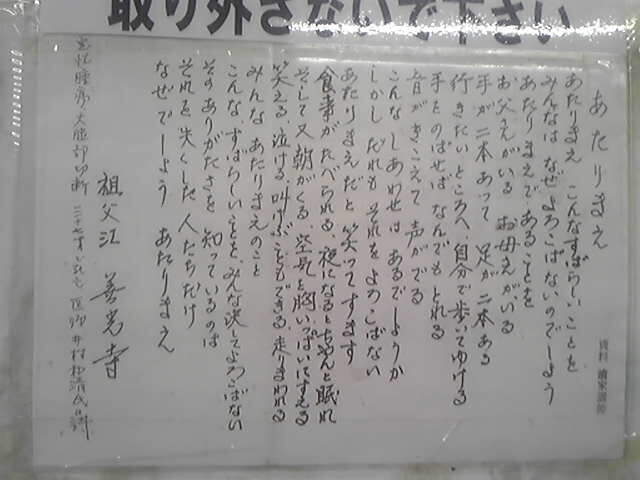 取り外さないで下さい
あたりまえ
あたりまえ こんなすばらしいことを
みんなは なぜよろこばないのでしょう
あたりまえであることを
お父さんがいる お母さんがいる
手が二本あって 足が二本ある
行きたいところへ 自分で歩いてゆける
手をのばせば なんでもとれる
音がきこえて 声がでる
こんなしあわせは あるでしょうか
しかし だれも それをよろこばない
あたりまえだと 笑ってすます
食事がたべられる、夜になるとちゃんと眠れ
そして又朝がくる、空気を胸いっぱいにすえる
笑える、泣ける、叫ぶこともできる、走りまわれる
みんなあたりまえのこと
こんなすばらしいことを、みんな決してよろこばない
そのありがたさを 知っているのは
それを失くした人たちだけ
なぜでしょう あたりまえ
祖父江 善光寺
医師 井村和清氏の詩